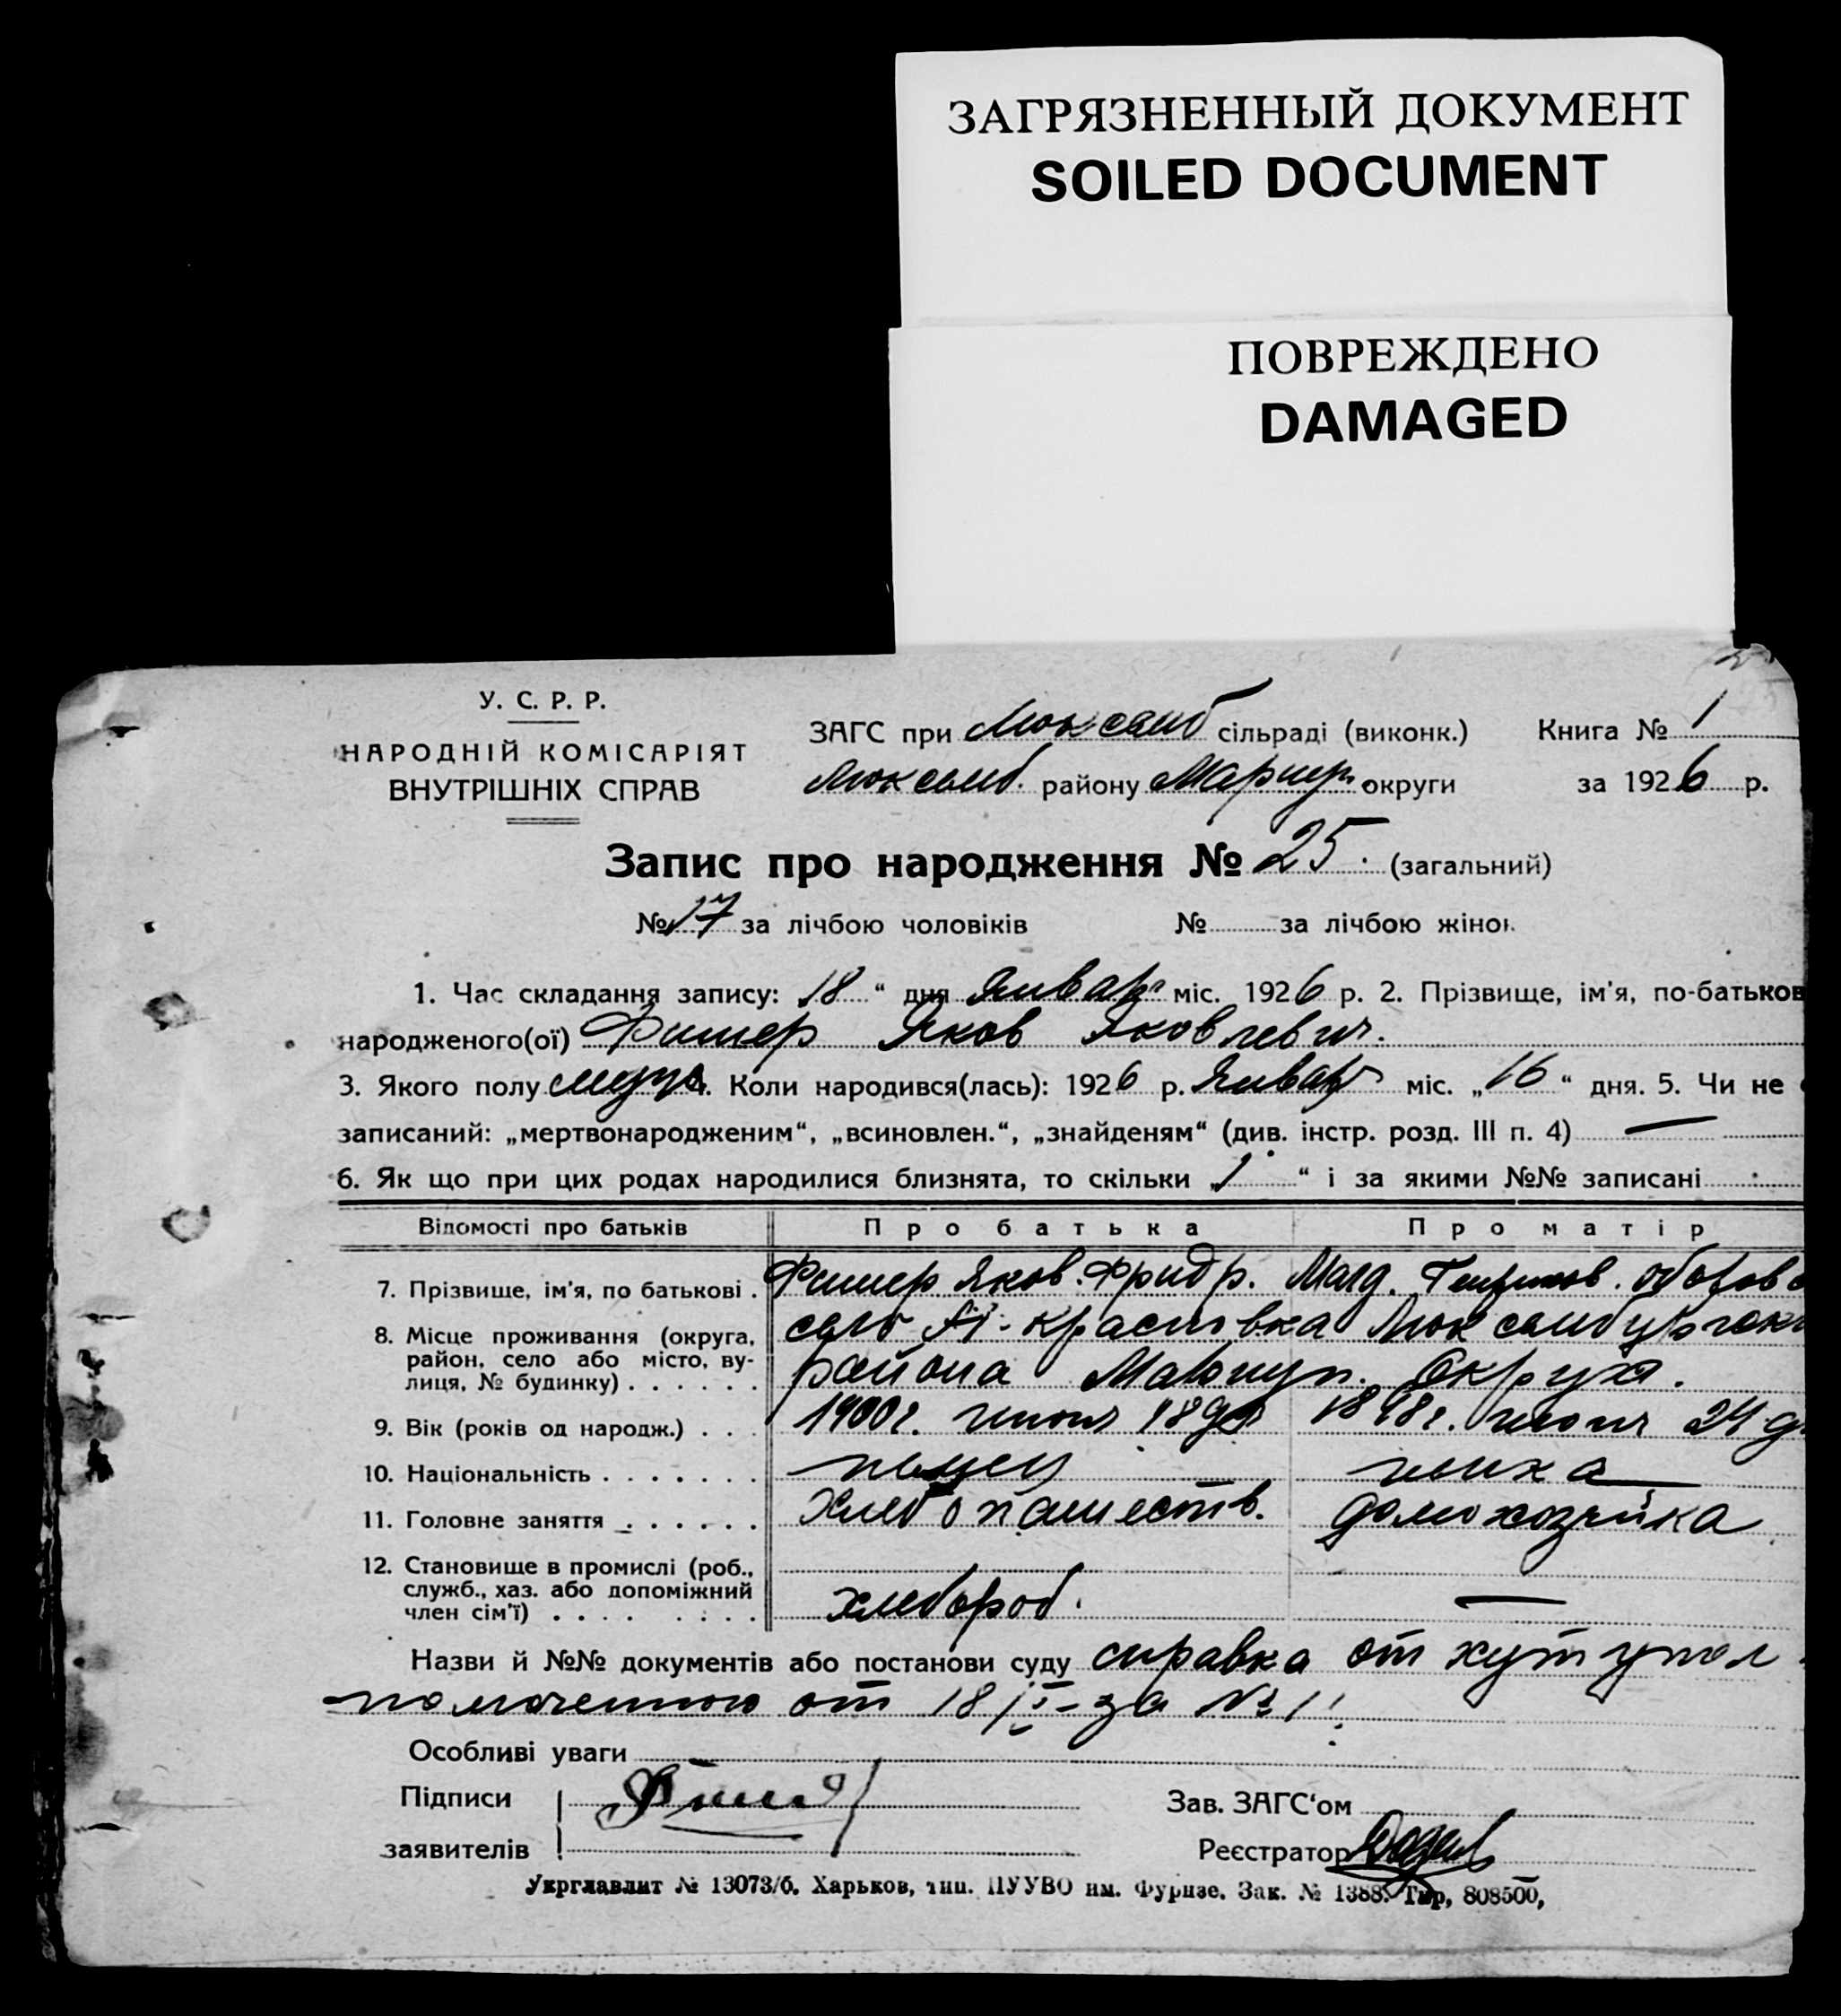 ЗАГРЯЗНЕННЫЙ ДОКУМЕНТ
SOILED DOCUMENT
ПОВРЕЖДЕНО
DAMAGED
У. С. Р. Р.
НАРОДНІЙ КОМІСАРІЯТ
ВНУТРІШНІХ СПРАВ
ЗАГС при Люксемб сільраді (виконк.) Книга № 1
Люксемб. району Мариуп. округи за 1926 р.
Запис про народження № 25. (загальний)
№ 17 за лічбою чоловіків № за лічбою жінок
1. Час складання запису: 18 “ дня Января міс. 1926 р. 2. Прізвище, ім'я, по-батьков
народженого(ої) Фишер Яков Яковлевич.
3. Якого полу мужс 4. Коли народився(лась): 1926 р. Января міс. „16“ дня. 5. Чи не
записаний: „мертвонародженим“, „всиновлен.“, „знайденям“ (див. інстр. розд. III п. 4) —
6. Як що при цих родах народилися близнята, то скільки „1“ і за якими №№ записані
Відомості про батьків Про батька Про матір
7. Прізвище, ім'я, по батькові . Фишер Яков. Фридр. Магд.
8. Місце проживання (округа, район, село або місто, вулиця, № будинку) . . . . . . село
района Мариуп. Округа.
9. Вік (років од народж.) . . . 1900г. 18 24
10. Національність . . . . . . . немец немка
11. Головне заняття . . . . . . Хлебопашеств. домохозяйка
12. Становище в промислі (роб.,
служб., хаз. або допоміжний
член сім'ї) . . . . . . . . хлебороб. —
Назви й №№ документів або постанови суду справка от хут упол
номоченного от 18/I-за № 1
Особливі уваги
Підписи Зав. ЗАГС'ом
заявителів Реєстратор
Укрглавлит № 13073/б. Харьков, тип. ПУУВО им. Фрунзе. Зак. № 1388. Тир, 808500,